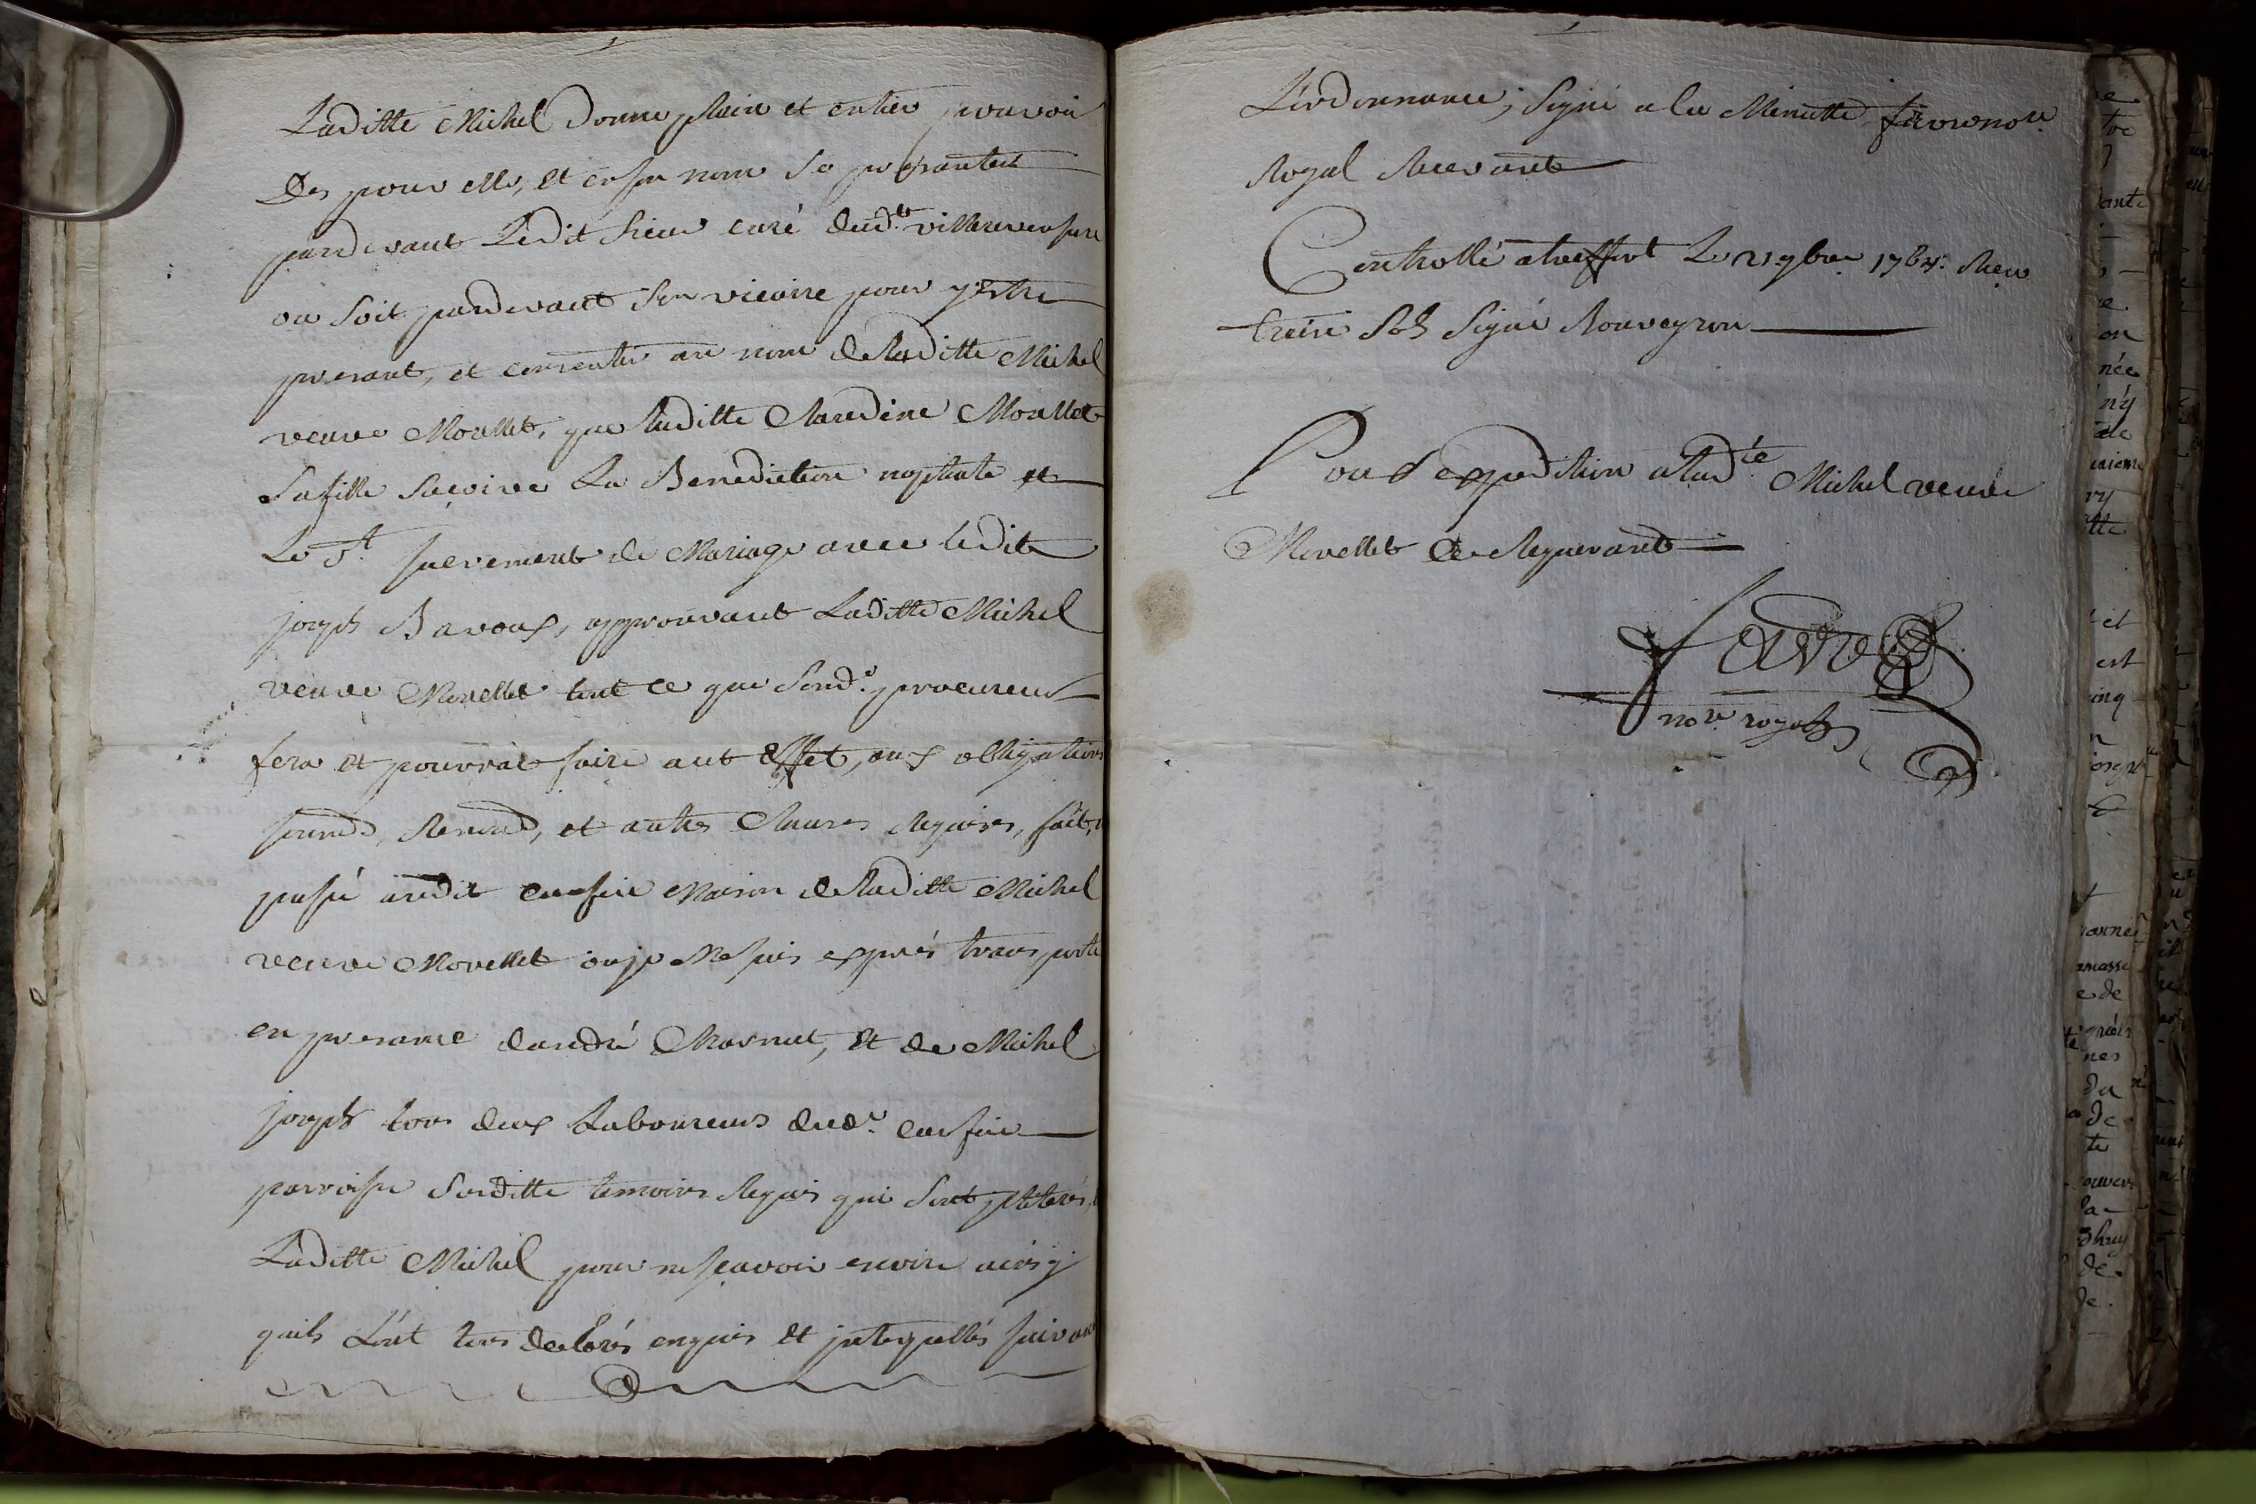 Laditte Michel Donne plain et entier pouvoir
Des pour elle, et en son nom Se presanter
pardevant Ledit Sieur curé dud.t villereversure
ou Soit pardevant Son vicaire pour y estre
presant, et consentir au nom de laditte Michel
veuve Morellet, que laditte Claudine Morellet
Safille Reçoive La Benediction nuptiale et
Le St. Sacrement de Mariage avec ledit
joseph Bavoux, approuvant Laditte Michel
veuve Morellet tout ce que Sond.t procureur
fera et pourrat faire aut Effet, aux obligations
Renond, et autres Clauses Requises, fait,
passé audit Maison de laditte Michel
veuve Morellet ou je Me suis exprés transporté
en presance dandré et de Michel
joseph tous deux Laboureurs dud.t
parroisse Surditte temoins Requis qui Sont jlliterés,
Laditte Michel pour ne sçavoir escrire ainsy
quils L'ont tous declarés enquis et jnterpellés suivant
L'ordonnance; Signé a la Minutte favre no.re
Royal Recevant
Controllé a treffort Le 21 9bre 1764. Reçu
treize Sols Signé Rouveyron
Pour Expedition a lad.te Michel veuve
Morellet Ce Requerant
favre
no.re royal